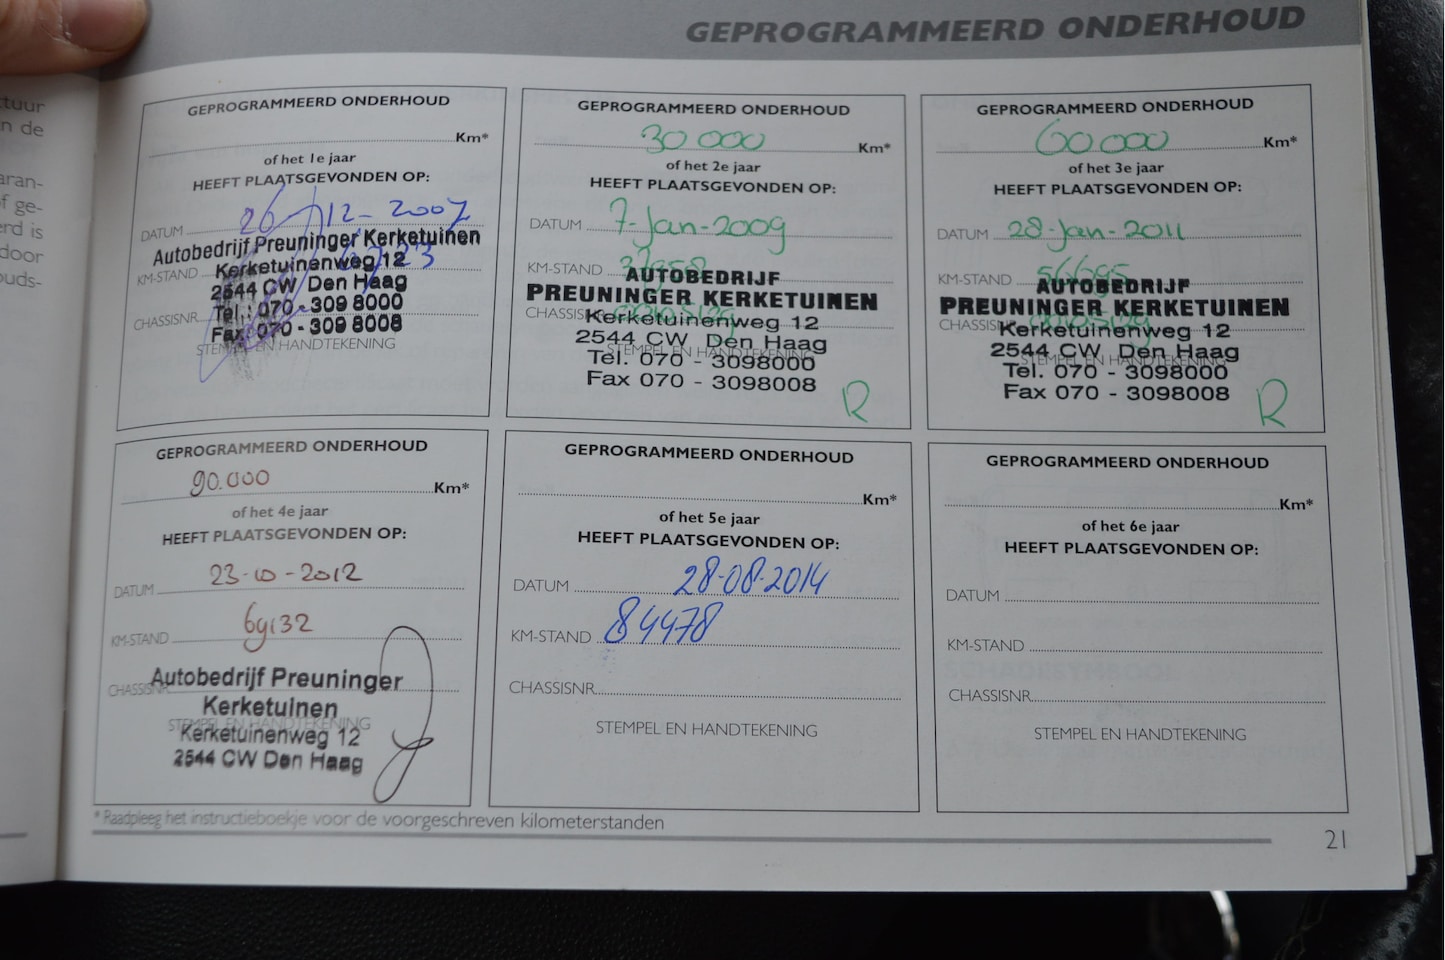 GEPROGRAMMEERD ONDERHOUD
ctuur
n de
aran-
f ge-
erd is
door
ouds-
GEPROGRAMMEERD ONDERHOUD
Km*
of het 1e jaar
HEEFT PLAATSGEVONDEN OP:
DATUM 20-12-2007
Autobedrijf Preuninger Kerketuinen
KM-STAND
Kerketuinenweg 12
2544 CW Den Haag
Tel.: 070 - 309 8000
CHASSISNR.
Fax 070 - 309 8008
STEMPEL EN HANDTEKENING
GEPROGRAMMEERD ONDERHOUD
30 000 Km*
of het 2e jaar
HEEFT PLAATSGEVONDEN OP:
DATUM 7-Jan-2009
KM-STAND
AUTOBEDRIJF
PREUNINGER KERKETUINEN
CHASSISNR
Kerketuinenweg 12
2544 CW Den Haag
STEMPEL EN HANDTEKENING
Tel. 070 - 3098000
Fax 070 - 3098008
R
GEPROGRAMMEERD ONDERHOUD
60 000 Km*
of het 3e jaar
HEEFT PLAATSGEVONDEN OP:
DATUM 28-Jan-2011
KM-STAND 56695
AUTOBEDRIJF
PREUNINGER KERKETUINEN
CHASSISNR
Kerketuinenweg 12
2544 CW Den Haag
STEMPEL EN HANDTEKENING
Tel. 070 - 3098000
Fax 070 - 3098008
R
GEPROGRAMMEERD ONDERHOUD
90.000 Km*
of het 4e jaar
HEEFT PLAATSGEVONDEN OP:
DATUM 23-10-2012
KM-STAND 69132
Autobedrijf Preuninger
CHASSISNR.
Kerketuinen
STEMPEL EN HANDTEKENING
Kerketuinenweg 12
2544 CW Den Haag
GEPROGRAMMEERD ONDERHOUD
Km*
of het 5e jaar
HEEFT PLAATSGEVONDEN OP:
DATUM 28-08-2014
KM-STAND 84478
CHASSISNR.
STEMPEL EN HANDTEKENING
GEPROGRAMMEERD ONDERHOUD
Km*
of het 6e jaar
HEEFT PLAATSGEVONDEN OP:
DATUM
KM-STAND
CHASSISNR.
STEMPEL EN HANDTEKENING
* Raadpleeg het instructieboekje voor de voorgeschreven kilometerstanden
21